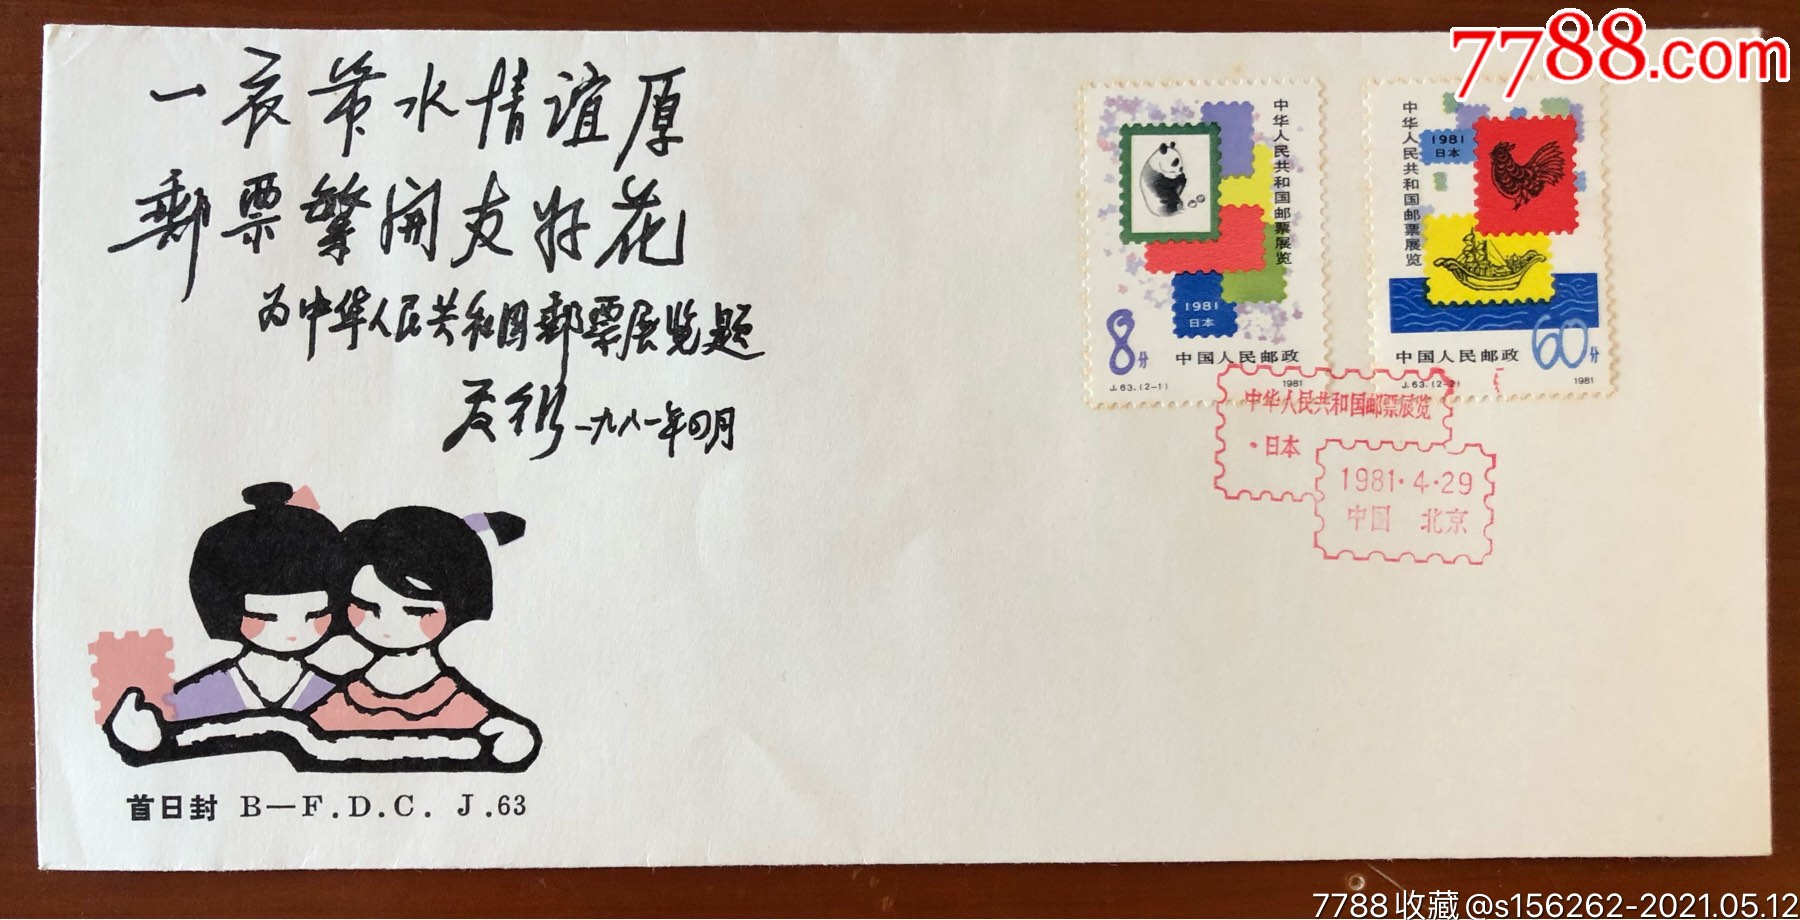 7788.com
一衣带水情谊厚
郵票繁開友好花
为中华人民共和国郵票展览题
夏衍 一九八一年四月
中华人民共和国邮票展览
1981
日本
8分
中国人民邮政
J.63.(2-1)
1981
中华人民共和国邮票展览
1981
日本
60分
中国人民邮政
J.63.(2-2)
1981
中华人民共和国邮票展览
·日本
1981·4·29
中国 北京
首日封 B—F.D.C. J.63
7788收藏@s156262-2021.05.12